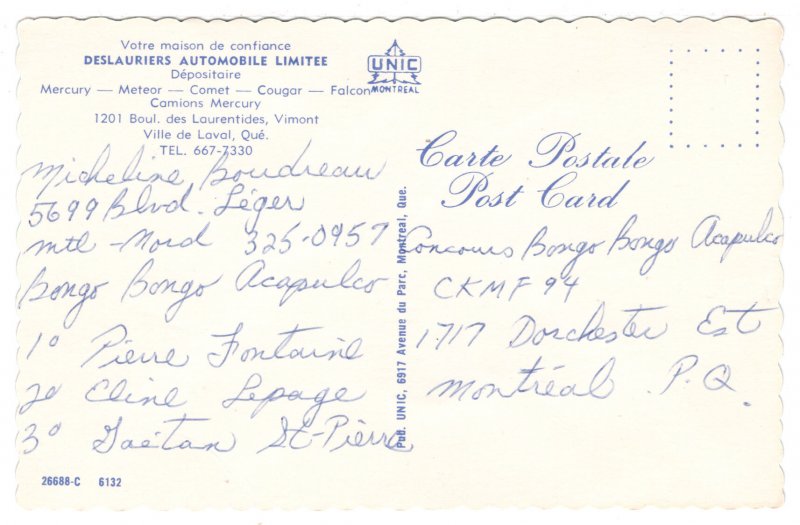 Votre maison de confiance
DESLAURIERS AUTOMOBILE LIMITEE
Dépositaire
Mercury — Meteor — Comet — Cougar — Falcon
Camions Mercury
1201 Boul. des Laurentides, Vimont
Ville de Laval, Qué.
TEL. 667-7330
UNIC
MONTREAL
Micheline Boudreau
5699 Blvd. Léger
Mtl - Nord 325-0957
Bongo Bongo Acapulco
1° Pierre Fontaine
2° Eline Lepage
3° Gaétan St-Pierre
26688-C 6132
Pub. UNIC, 6917 Avenue du Parc, Montreal, Que.
Carte Postale
Post Card
Concours Bongo Bongo Acapulco
CKMF 94
1717 Dorchester Est
Montréal P.Q.